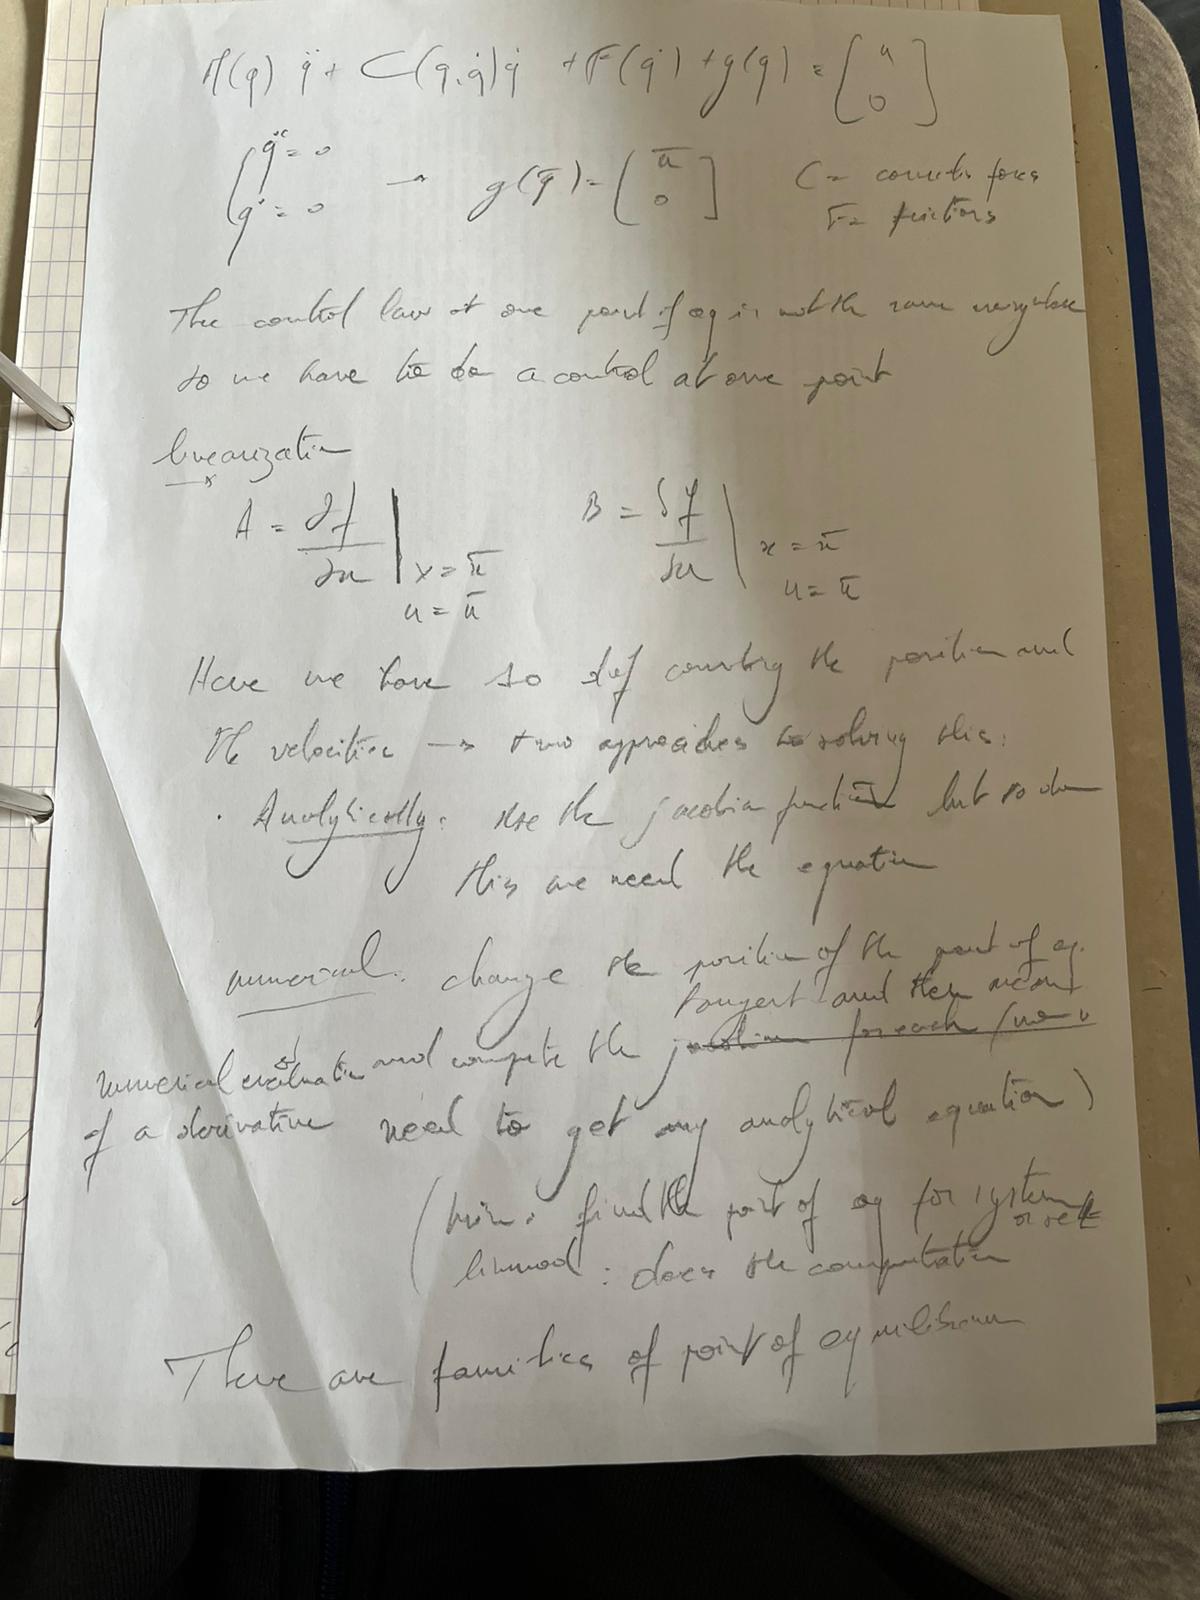 M(q) q̈ + C(q,q̇)q̇ + F(q̇) + g(q) = [u 0]
{ q̈ = 0
q̇ = 0 → g(q̄) = [ū 0]
C = forces
F = frictions
The control law at one point of eq is not the same everywhere
so we have to do a control at one point
linearization
A = ∂f/∂x | x = x̄ u = ū
B = δf/δu | x = x̄ u = ū
Here we have 10 dof counting the position and
the velocities → two approaches to solving this:
· Analytically: use the jacobian function but to do
this we need the equation
numerical: change the position of the point of eq.
tangent and then
numerical evaluation and compute the jacobian for each (no
of a derivative need to get any analytical equation)
(trim: find the point of eq for system
linmod: does the computation
There are families of point of equilibrium